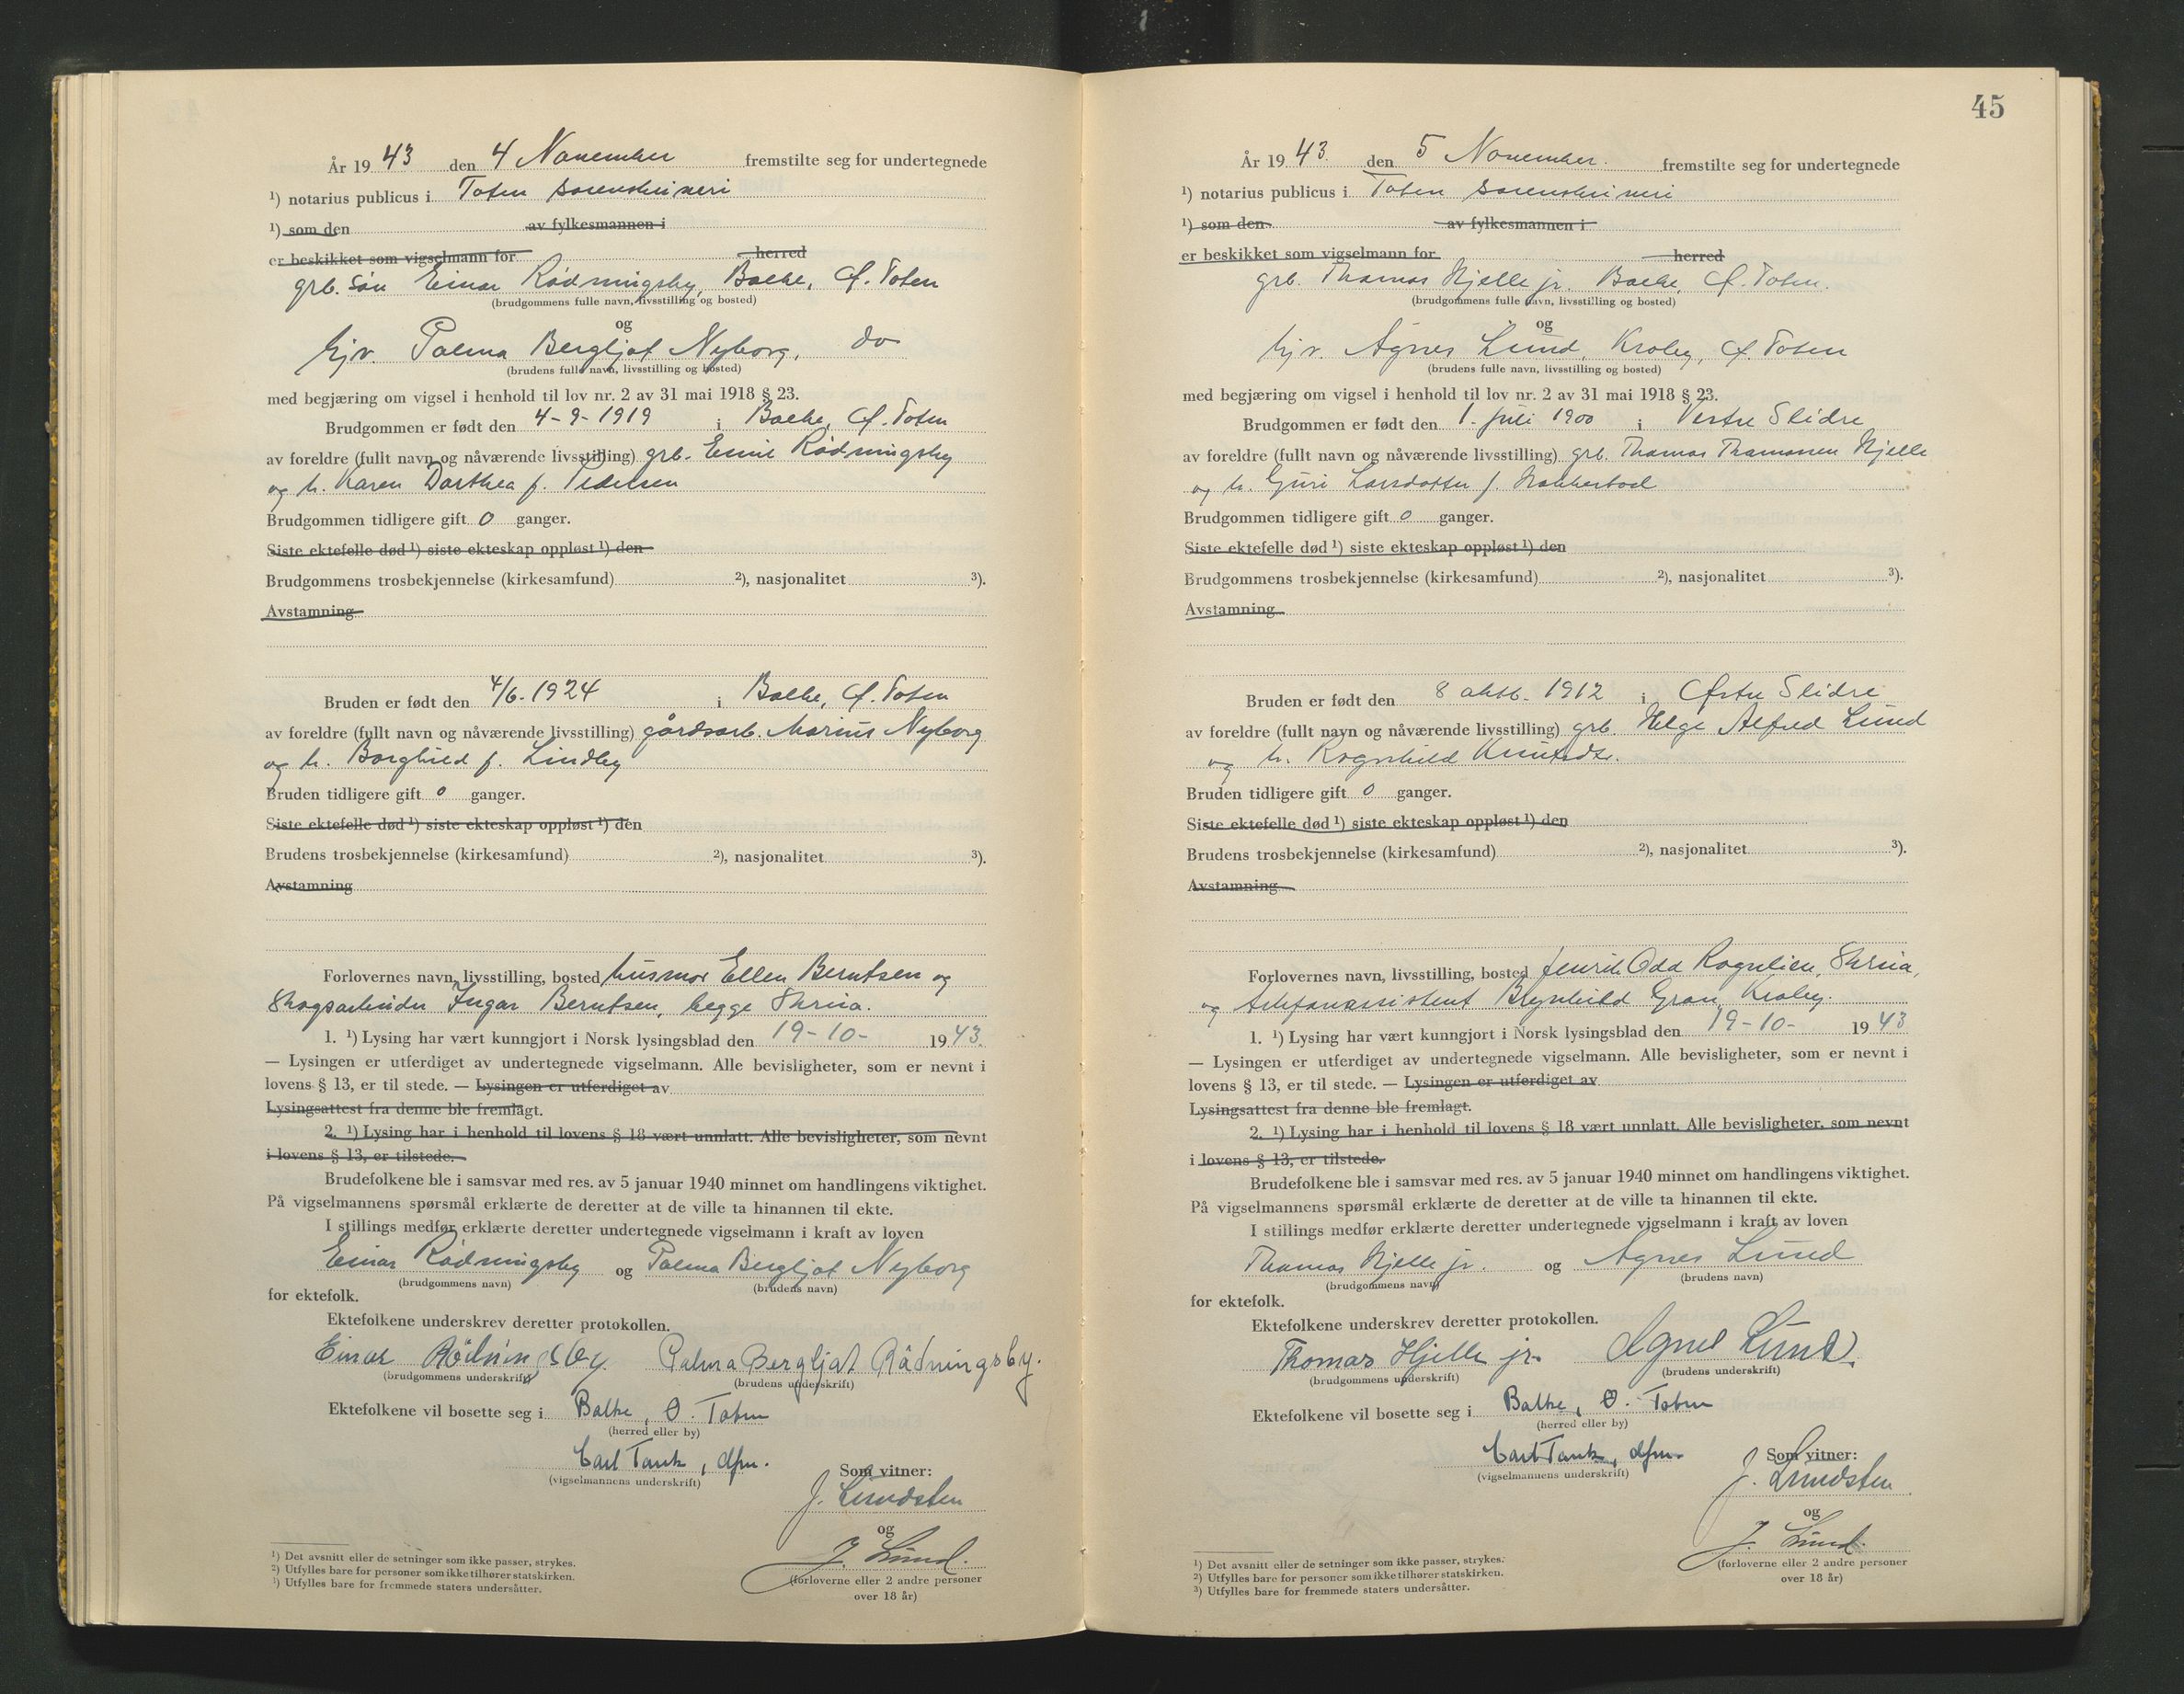 År 1943 den 4 November fremstilte seg for undertegnede
¹) notarius publicus i Toten sorenskriveri
¹) som den av fylkesmannen i
er beskikket som vigselmann for herred
grb. søn Einar Rødningsby, Balke, Ø. Toten
(brudgommens fulle navn, livsstilling og bosted)
og
hjv. Palma Bergljot Nyborg, do
(brudens fulle navn, livsstilling og bosted)
med begjæring om vigsel i henhold til lov nr. 2 av 31 mai 1918 § 23.
Brudgommen er født den 4-9-1919 i Balke, Ø. Toten
av foreldre (fullt navn og nåværende livsstilling) grb. Emil Rødningsby
og h. Karen Dorthea f. Pedersen
Brudgommen tidligere gift 0 ganger.
Siste ektefelle død ¹) siste ekteskap oppløst ¹) den
Brudgommens trosbekjennelse (kirkesamfund) ²), nasjonalitet ³).
Avstamning
Bruden er født den 4/6-1924 i Balke, Ø. Toten
av foreldre (fullt navn og nåværende livsstilling) gårdsarb. Marius Nyborg
og h. Borghild f. Lindby
Bruden tidligere gift 0 ganger.
Siste ektefelle død ¹) siste ekteskap oppløst ¹) den
Brudens trosbekjennelse (kirkesamfund) ²), nasjonalitet ³).
Avstamning
Forlovernes navn, livsstilling, bosted husmor Ellen Berntsen og
skogsarbeider Ingar Berntsen, begge Skreia.
1. ¹) Lysing har vært kunngjort i Norsk lysingsblad den 19-10- 1943.
— Lysingen er utferdiget av undertegnede vigselmann. Alle bevisligheter, som er nevnt i
lovens § 13, er til stede. — Lysingen er utferdiget av
Lysingsattest fra denne ble fremlagt.
2. ¹) Lysing har i henhold til lovens § 18 vært unnlatt. Alle bevisligheter, som nevnt
i lovens § 13, er tilstede.
Brudefolkene ble i samsvar med res. av 5 januar 1940 minnet om handlingens viktighet.
På vigselmannens spørsmål erklærte de deretter at de ville ta hinannen til ekte.
I stillings medfør erklærte deretter undertegnede vigselmann i kraft av loven
Einar Rødningsby og Palma Bergljot Nyborg
(brudgommens navn) (brudens navn)
for ektefolk.
Ektefolkene underskrev deretter protokollen.
Einar Rödningsby. Palma Bergljot Rådningsby.
(brudgommens underskrift) (brudens underskrift)
Ektefolkene vil bosette seg i Balke, Ø. Toten
(herred eller by)
Carl Tank, dfm.
(vigselmannens underskrift)
Som vitner:
J. Lundsten
og
J. Lund.
(forloverne eller 2 andre personer
over 18 år)
¹) Det avsnitt eller de setninger som ikke passer, strykes.
²) Utfylles bare for personer som ikke tilhører statskirken.
³) Utfylles bare for fremmede staters undersåtter.
45
År 1943 den 5 November. fremstilte seg for undertegnede
¹) notarius publicus i Toten sorenskriveri
¹) som den av fylkesmannen i
er beskikket som vigselmann for herred
grb. Thomas Hjelle jr. Balke, Ø. Toten.
(brudgommens fulle navn, livsstilling og bosted)
og
hjv. Agnes Lund, Kraby, Ø. Toten
(brudens fulle navn, livsstilling og bosted)
med begjæring om vigsel i henhold til lov nr. 2 av 31 mai 1918 § 23.
Brudgommen er født den 1. juli 1900 i Vestre Slidre
av foreldre (fullt navn og nåværende livsstilling) grb. Thomas Thomassen Hjelle
og h. Guri Larsdotter f.
Brudgommen tidligere gift 0 ganger.
Siste ektefelle død ¹) siste ekteskap oppløst ¹) den
Brudgommens trosbekjennelse (kirkesamfund) ²), nasjonalitet ³).
Avstamning
Bruden er født den 8 oktb. 1912 i Østre Slidre
av foreldre (fullt navn og nåværende livsstilling) grb. Helge Alfred Lund
og h. Ragnhild Knutsdtr.
Bruden tidligere gift 0 ganger.
Siste ektefelle død ¹) siste ekteskap oppløst ¹) den
Brudens trosbekjennelse (kirkesamfund) ²), nasjonalitet ³).
Avstamning
Forlovernes navn, livsstilling, bosted fenrik Odd Rognlien, Skreia,
og Brynhild Gran, Kraby.
1. ¹) Lysing har vært kunngjort i Norsk lysingsblad den 19-10- 1943
— Lysingen er utferdiget av undertegnede vigselmann. Alle bevisligheter, som er nevnt i
lovens § 13, er til stede. — Lysingen er utferdiget av
Lysingsattest fra denne ble fremlagt.
2. ¹) Lysing har i henhold til lovens § 18 vært unnlatt. Alle bevisligheter, som nevnt
i lovens § 13, er tilstede.
Brudefolkene ble i samsvar med res. av 5 januar 1940 minnet om handlingens viktighet.
På vigselmannens spørsmål erklærte de deretter at de ville ta hinannen til ekte.
I stillings medfør erklærte deretter undertegnede vigselmann i kraft av loven
Thomas Hjelle jr. og Agnes Lund
(brudgommens navn) (brudens navn)
for ektefolk.
Ektefolkene underskrev deretter protokollen.
Thomas Hjelle jr. Agnes Lund.
(brudgommens underskrift) (brudens underskrift)
Ektefolkene vil bosette seg i Balke, Ø. Toten
(herred eller by)
Carl Tank, dfm.
(vigselmannens underskrift)
Som vitner:
J. Lundsten
og
J. Lund.
(forloverne eller 2 andre personer
over 18 år)
¹) Det avsnitt eller de setninger som ikke passer, strykes.
²) Utfylles bare for personer som ikke tilhører statskirken.
³) Utfylles bare for fremmede staters undersåtter.